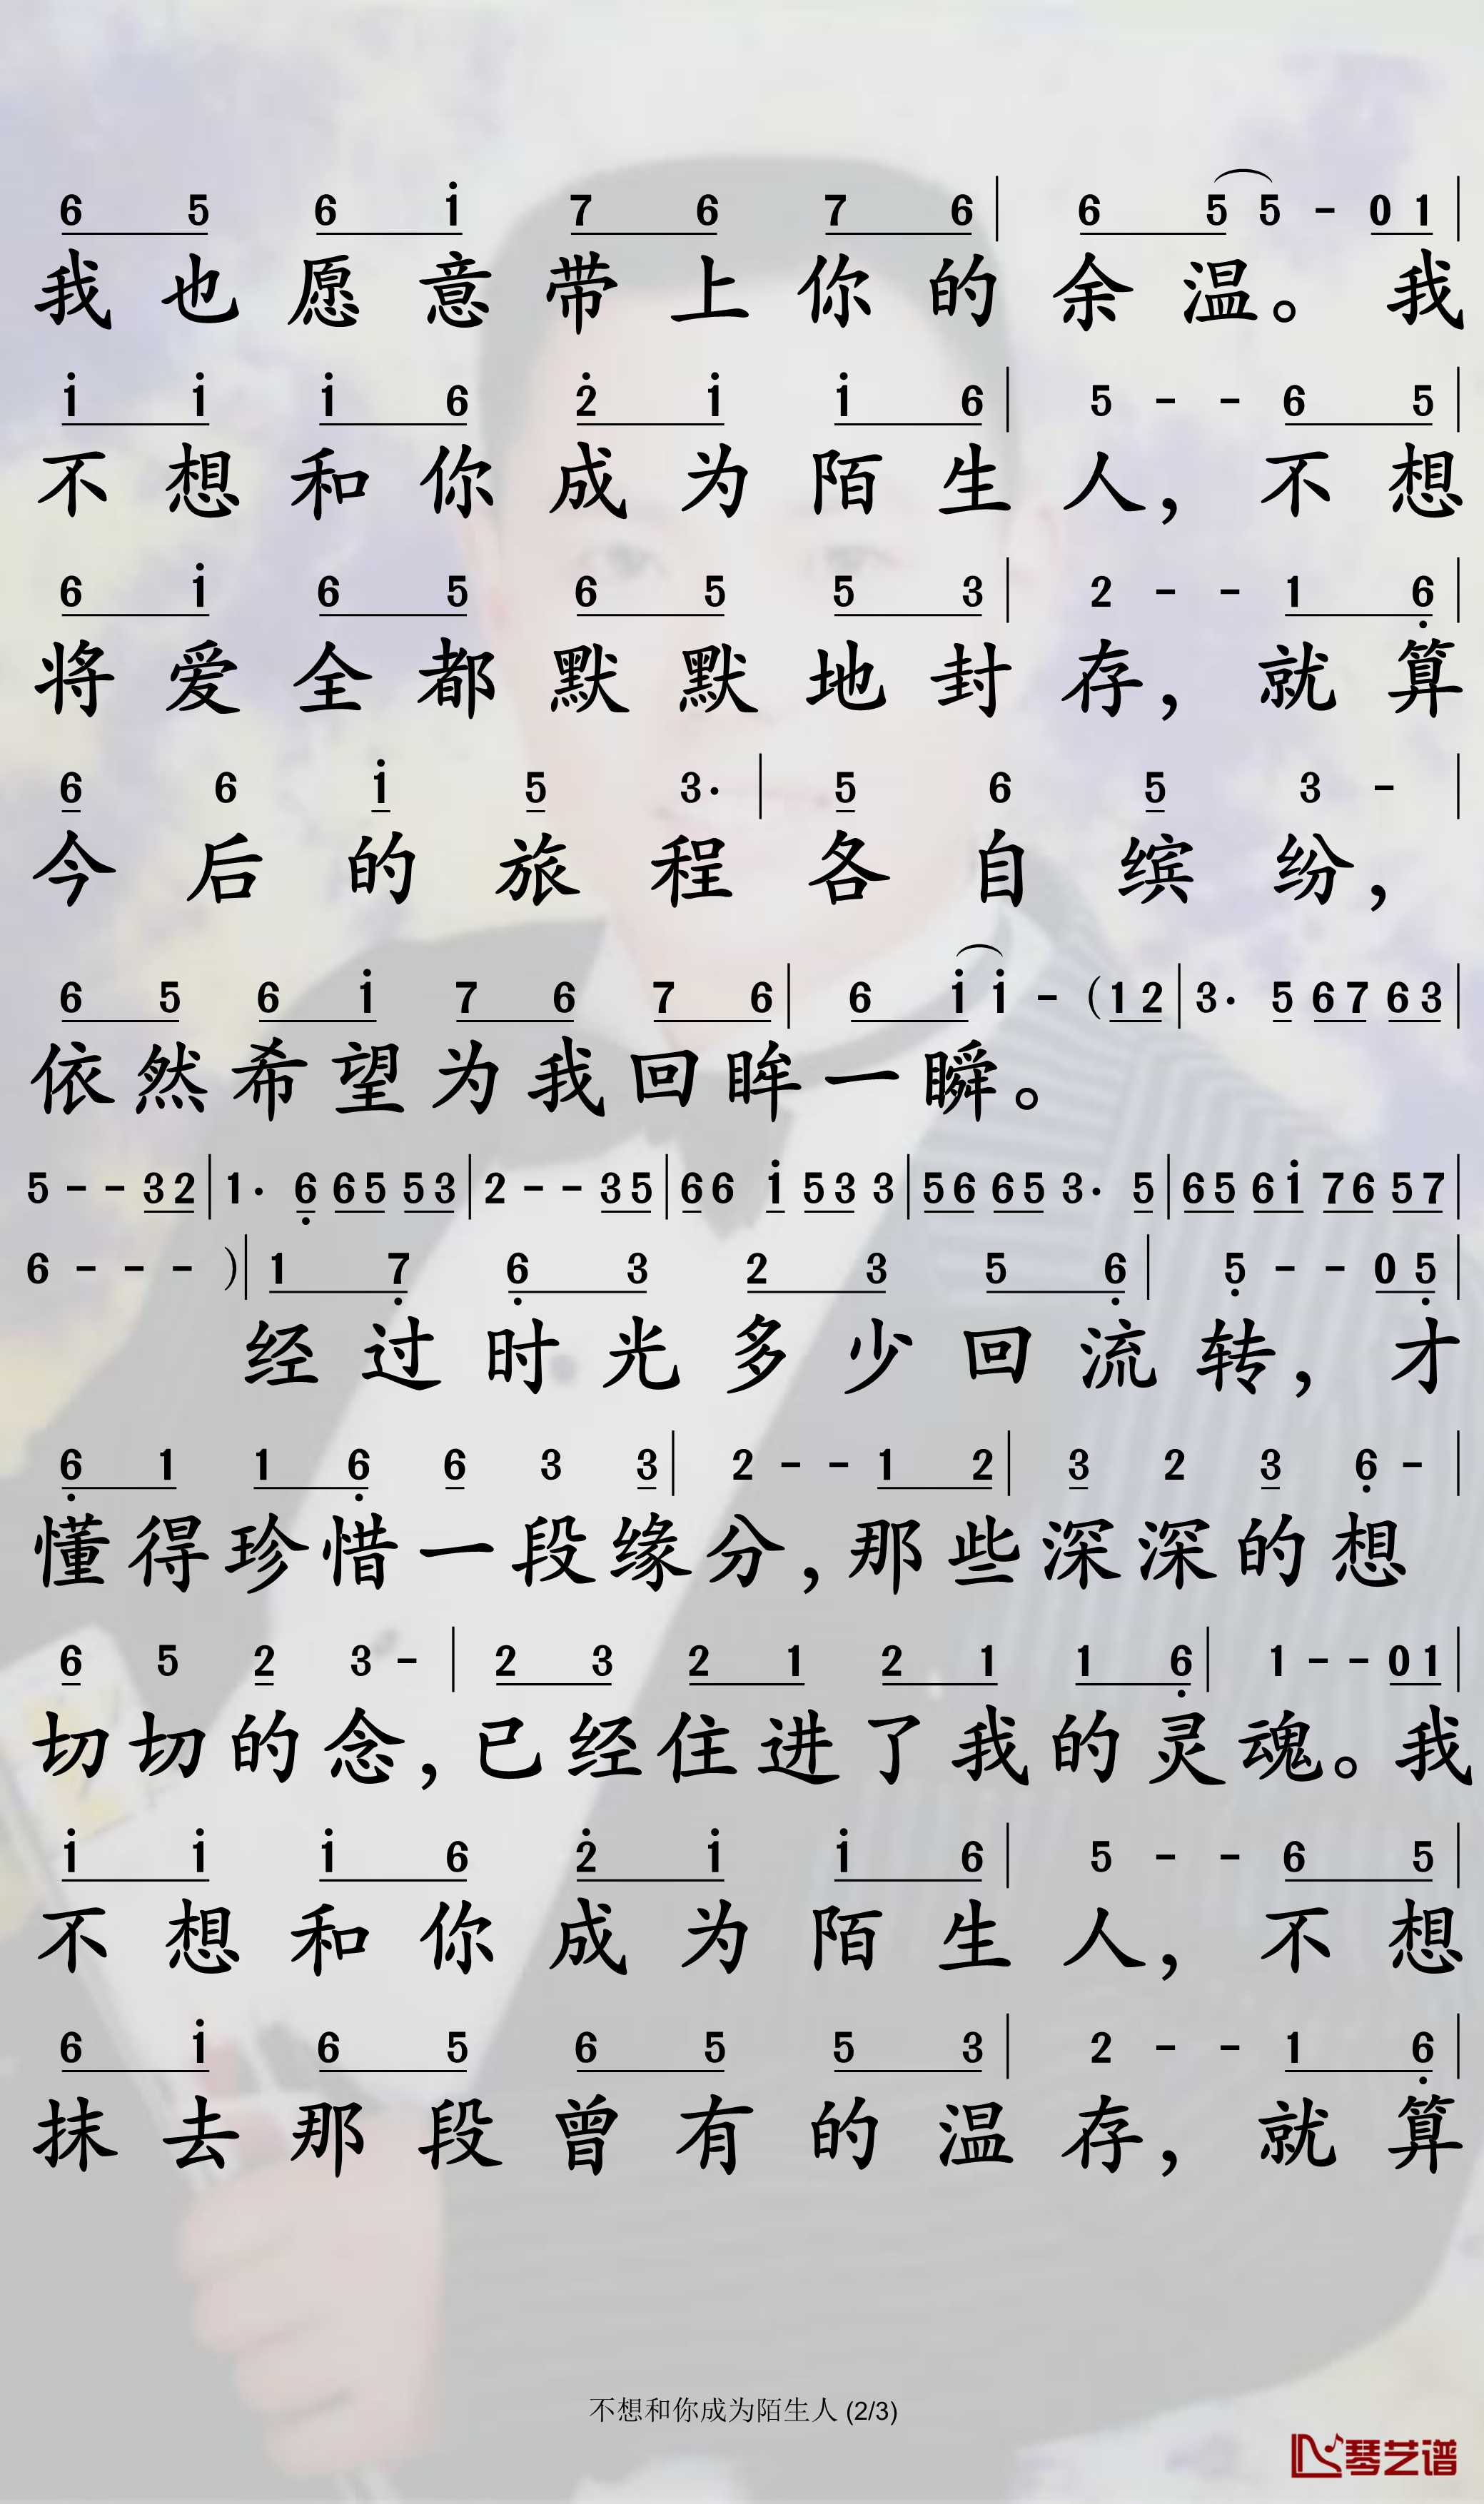 6 5 6 i 7 6 7 6 | 6 5 5 - 0 1 |
我也愿意带上你的余温。我
i i i 6 2̇ i i 6 | 5 - - 6 5 |
不想和你成为陌生人，不想
6 i 6 5 6 5 5 3 | 2 - - 1 6̣ |
将爱全都默默地封存，就算
6 6 i 5 3· | 5 6 5 3 - |
今后的旅程各自缤纷，
6 5 6 i 7 6 7 6 | 6 i i - (1 2 | 3· 5 6 7 6 3 |
依然希望为我回眸一瞬。
5 - - 3 2 | 1· 6̣ 6 5 5 3 | 2 - - 3 5 | 6 6 i 5 3 3 | 5 6 6 5 3· 5 | 6 5 6 i 7 6 5 7 |
6 - - - ) | 1 7̣ 6̣ 3 2 3 5 6̣ | 5̣ - - 0 5̣ |
经过时光多少回流转，才
6̣ 1 1 6̣ 6 3 3 | 2 - - 1 2 | 3 2 3 6̣ - |
懂得珍惜一段缘分，那些深深的想
6 5 2 3 - | 2 3 2 1 2 1 1 6̣ | 1 - - 0 1 |
切切的念，已经住进了我的灵魂。我
i i i 6 2̇ i i 6 | 5 - - 6 5 |
不想和你成为陌生人，不想
6 i 6 5 6 5 5 3 | 2 - - 1 6̣ |
抹去那段曾有的温存，就算
不想和你成为陌生人 (2/3)
琴艺谱